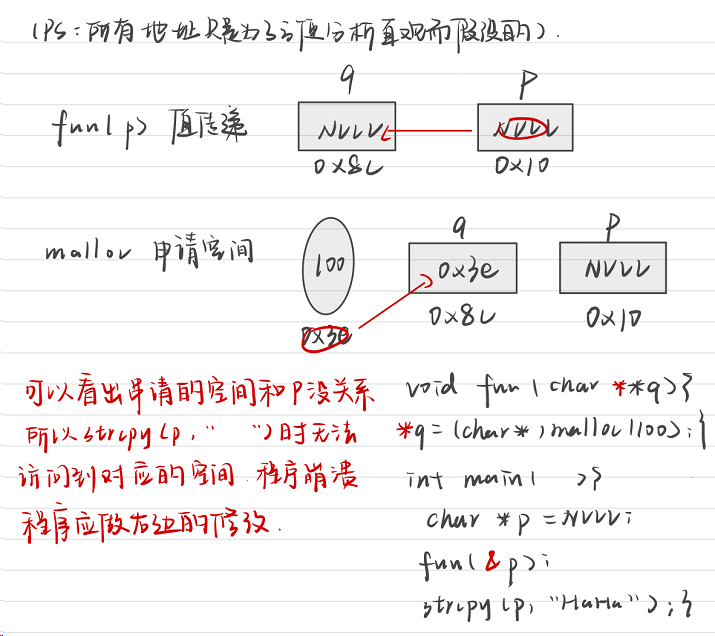 (PS:所有地址只是为了方便分析直观而假设的).
q P
fun(p) 值传递 NULL NULL
0x8c 0x10
q P
malloc 申请空间 100 0x3e NULL
0x3e 0x8c 0x10
可以看出申请的空间和P没关系
所以strcpy(p," ")时无法
访问到对应的空间.程序崩溃
程序应做右边的修改.
void fun(char **q){
*q=(char*)malloc(100);}
int main( ){
char *p=NULL;
fun(&p);
strcpy(p,"HaHa");}